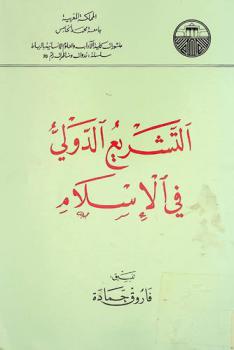 المملكة المغربية
جامعة محمد الخامس
منشورات كلية الآداب والعلوم الإنسانية بالرباط
سلسلة: ندوات ومناظرات رقم
التشريع الدولي
في الإسلام
تنسيق:
فاروق حمادة